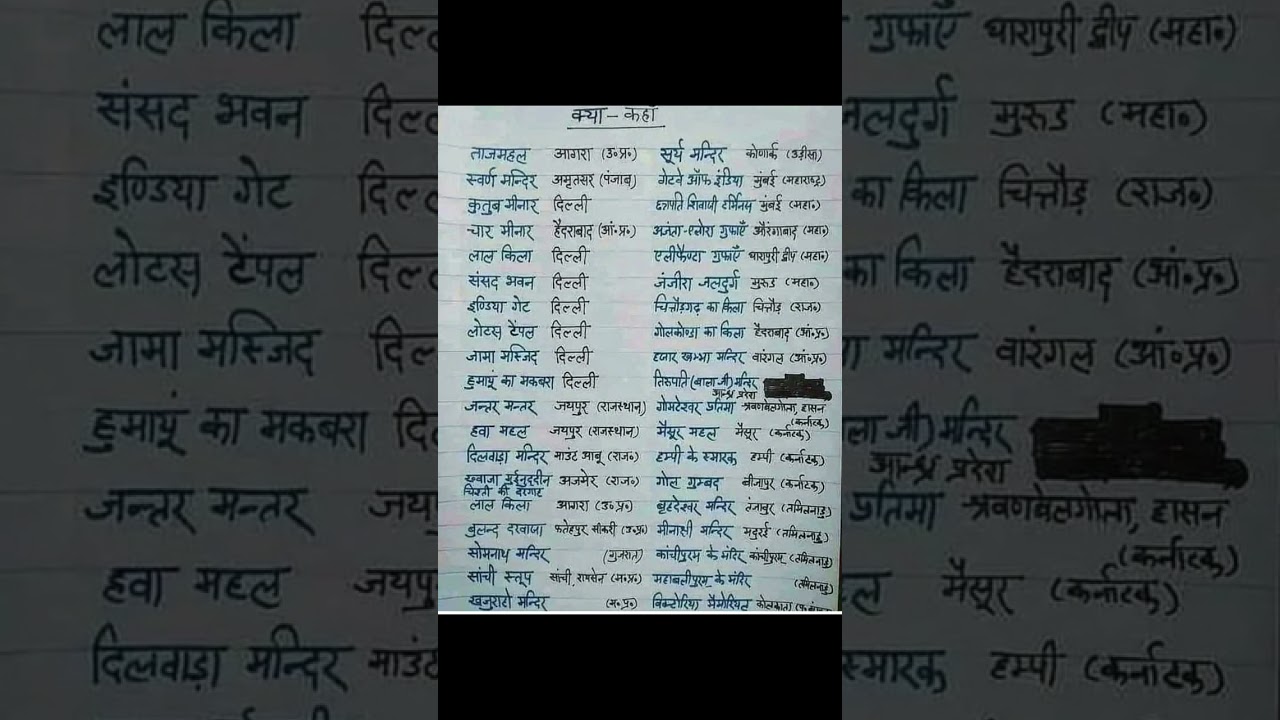 क्या - कहाँ
ताजमहल आगरा (उ॰प्र॰) सूर्य मन्दिर कोणार्क (उड़ीसा)
स्वर्ण मन्दिर अमृतसर (पंजाब) गेटवे ऑफ इंडिया मुंबई (महाराष्ट्र)
कुतुब मीनार दिल्ली छत्रपति शिवाजी टर्मिनस मुंबई (महा॰)
चार मीनार हैदराबाद (आं॰प्र॰) अजंता-एलोरा गुफाएँ औरंगाबाद (महा॰)
लाल किला दिल्ली एलीफैण्टा गुफाएँ धारापुरी द्वीप (महा॰)
संसद भवन दिल्ली जंजीरा जलदुर्ग मुरुड (महा॰)
इण्डिया गेट दिल्ली चित्तौड़गढ़ का किला चित्तौड़ (राज॰)
लोटस टेंपल दिल्ली गोलकोण्डा का किला हैदराबाद (आं॰प्र॰)
जामा मस्जिद दिल्ली हजार खम्भा मन्दिर वारंगल (आं॰प्र॰)
हुमायूं का मकबरा दिल्ली तिरुपति (बाला जी) मन्दिर
आन्ध्र प्रदेश
जन्तर मन्तर जयपुर (राजस्थान) गोमटेश्वर प्रतिमा श्रवणबेलगोला, हासन
(कर्नाटक)
हवा महल जयपुर (राजस्थान) मैसूर महल मैसूर (कर्नाटक)
दिलवाड़ा मन्दिर माउंट आबू (राज॰) हम्पी के स्मारक हम्पी (कर्नाटक)
ख्वाजा मुईनुद्दीन अजमेर (राज॰) गोल गुम्बद बीजापुर (कर्नाटक)
चिश्ती की दरगाह
लाल किला आगरा (उ॰प्र॰) बृहदेश्वर मन्दिर तंजावुर (तमिलनाडु)
बुलन्द दरवाजा फतेहपुर सीकरी (उ॰प्र॰) मीनाक्षी मन्दिर मदुरई (तमिलनाडु)
सोमनाथ मन्दिर (गुजरात) कांचीपुरम के मंदिर कांचीपुरम (तमिलनाडु)
सांची स्तूप सांची, रायसेन (म॰प्र॰) महाबलीपुरम के मंदिर (तमिलनाडु)
खजुराहो मन्दिर (म॰प्र॰) विक्टोरिया मैमोरियल कोलकाता